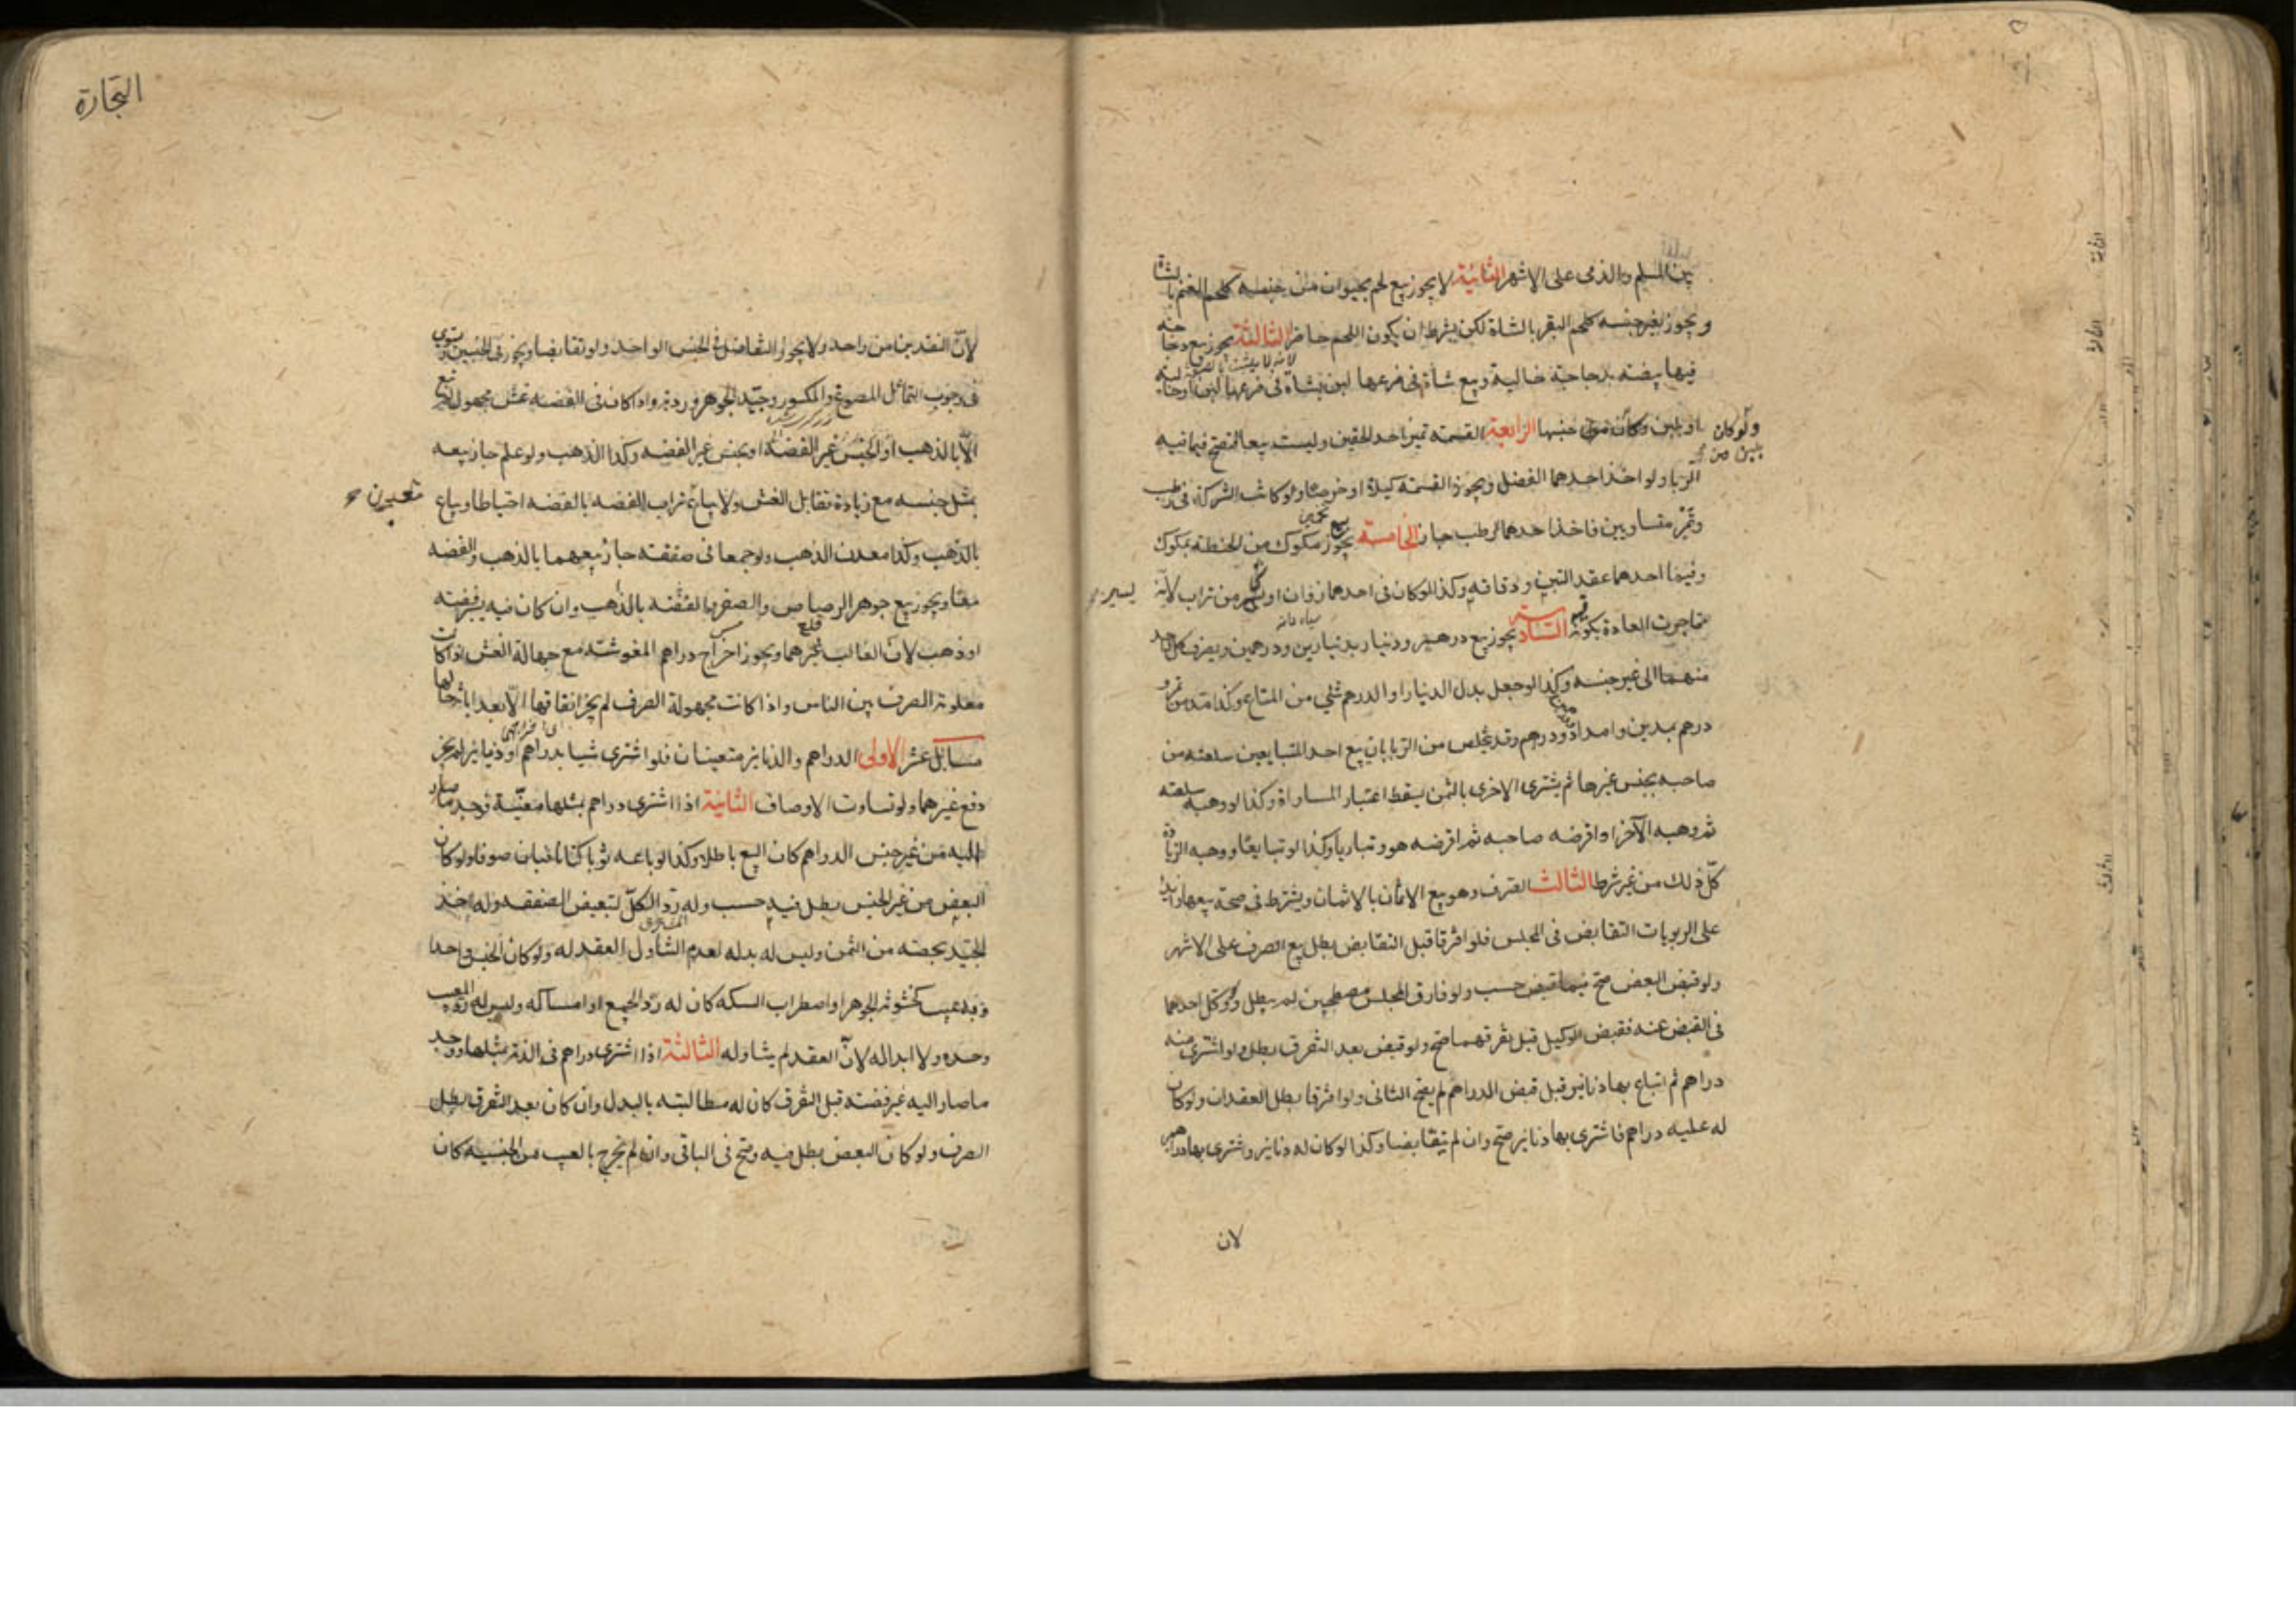 بين المسلم والذمى على الاشهر الثانية لا يجوز بيع لحم بحيوان من جنسه كلحم الغنم بالشاة
و يجوز بغير جنسه كلحم البقر بالشاة لكن بشرط ان يكون اللحم حاضرا الثالثة يجوز بيع دجاجة
فيها بيضة بدجاجة خالية وبيع شاة فى ضرعها لبن بشاة فى ضرعها لبن او خالية
او بلبن ولو كان من لبن جنسها الرابعة القسمة تميز احد الحقين وليست بيعا فتصح فيما فيه
الربا ولو اخذ احدهما الفضل ويجوز القسمة كيلا او خرصا ولو كانت الشركة فى رطب
وتمر متساويين فاخذ احدهما الرطب جاز الخامسة يجوز بيع مكوك من الحنطة بمكوك
وفيما احدهما عقد التبن و دقاقه وكذا لو كان فى احدهما زوان او يسير من تراب لانه
مما جرت العادة بكونه فيه السادسة يجوز بيع درهم ودينار بدينارين ودرهمين ويصرف كل واحد
منهما الى غير جنسه وكذا لو جعل بدل الدينار او الدرهم شئ من المتاع وكذا مد من تمر و
درهم بمدين وامداد ودرهم وقد يتخلص من الربا بان يبيع احد المتبايعين سلعته من
صاحبه بجنس غيرها ثم يشترى الاخرى بالثمن يسقط اعتبار المساواة وكذا لو وهبه سلعته
ثم وهبه الآخر او اقرضه صاحبه ثم اقرضه هو وتباريا وكذا لو تبايعا ووهبه الزيادة
كل ذلك من غير شرط الثالث الصرف وهو بيع الاثمان بالاثمان ويشترط فى صحة بيعها زايدا
على الربويات التقابض فى المجلس فلو افترقا قبل التقابض بطل بيع الصرف على الاشهر
ولو قبض البعض صح فيما قبض حسب ولو فارقا المجلس مصطحبين لم يبطل ولو وكل احدهما
فى القبض عنه فقبض الوكيل قبل تفرقهما صح ولو قبض بعد التفرق بطل ولو اشترى منه
دراهم ثم ابتاع بها دنانير قبل قبض الدراهم لم يصح الثانى ولو افترقا بطل العقدان ولو كان
له عليه دراهم فاشترى بها دنانير صح وان لم يتقابضا وكذا لو كان له دنانير واشترى بها دراهم
لان
التجارة
لان النقدين من واحد ولا يجوز التفاضل فى الجنس الواحد ولو تقابضا ويجوز فى الجنسين ويستوى
فى وجوب التماثل المصوغ والمكسور وجيد الجوهر ورديه واذا كان فى الفضة غش مجهول لم تبع
الا بالذهب او لجنس غير الفضة او بجنس غير الفضة وكذا الذهب ولو علم جاز بيعه
بمثل جنسه مع زيادة تقابل الغش ولا يباع تراب الفضه بالفضه احتياطا ويباع
بالذهب وكذا معدن الذهب ولو جمعا فى صفقة جاز بيعهما بالذهب والفضه
معا ويجوز بيع جوهر الرصاص والصفر بالفضة بالذهب وان كان فيه يسير فضة
او ذهب لان الغالب غيرهما ويجوز اخراج دراهم المغوشة مع جهالة الغش اذا كانت
معلومة الصرف بين الناس واذا كانت مجهولة الصرف لم يجز انفاقها الا بعد ابانة حالها
مسائل عشر الاولى الدراهم والدنانير متعينان فلو اشترى شيا بدراهم او دنانير لم يجز
دفع غيرهما ولو تساوت الاوصاف الثانية اذا اشترى دراهم بمثلها معينة فوجد ما صار
اليه من غير جنس الدراهم كان البيع باطلا وكذا لو باعه ثوبا كتانا فبان صوفا ولو كان
البعض من غير الجنس بطل فيه حسب وله رد الكل لتبعيض الصفقه وله اخذ
الجيد بحصته من الثمن وليس له بدله لعدم تناول العقد له ولو كان الجنس واحدا
وبه عيب كخشونة الجوهر او اضطراب السكه كان له رد الجميع او امساكه وليس له رد المعيب
وحده ولا ابداله لان العقد لم يتناوله الثالثة اذا اشترى دراهم فى الذمة بمثلها ووجد
ما صار اليه غير فضة قبل التفرق كان له مطالبته بالبدل وان كان بعد التفرق بطل
الصرف ولو كان البعض بطل فيه وصح فى الباقى وان لم يخرج بالعيب من الجنسيه كان